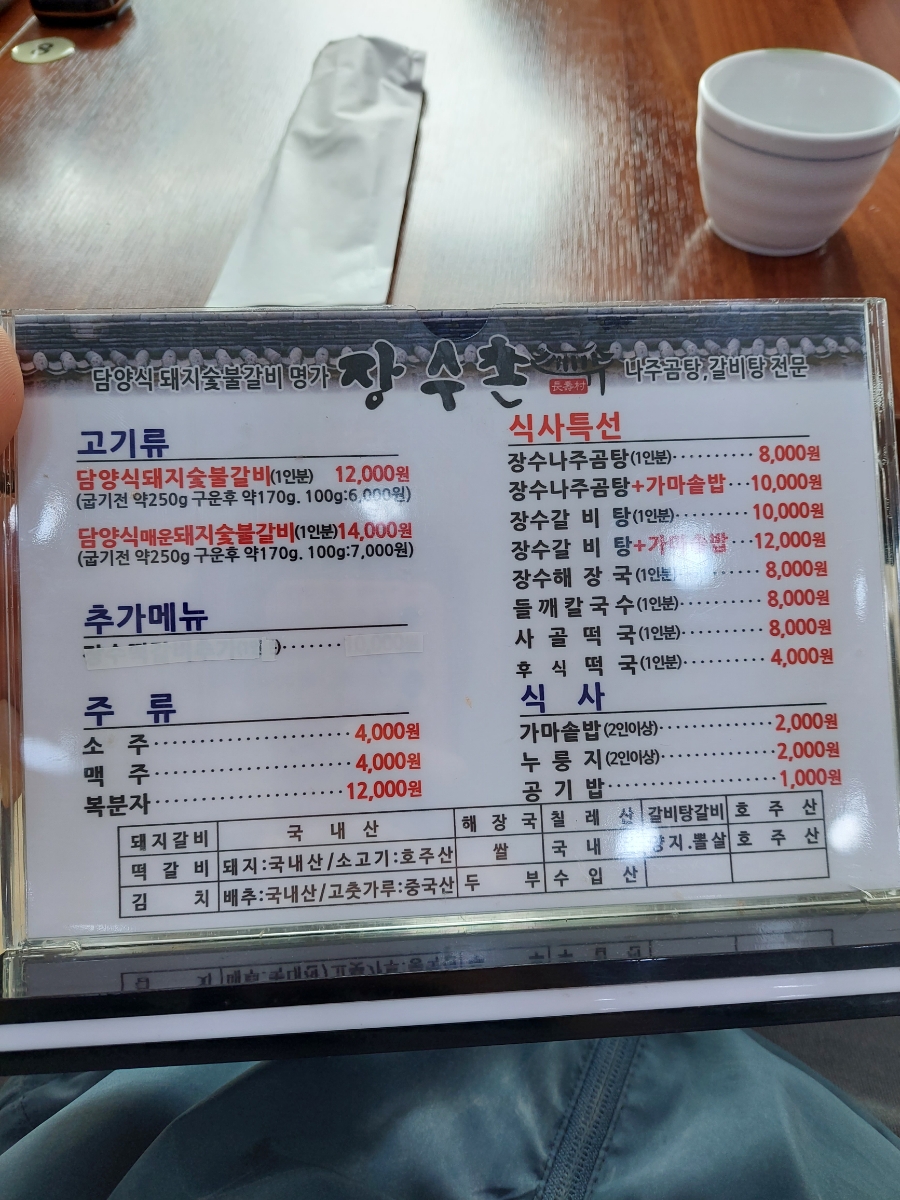 담양식 돼지숯불갈비 명가 장수촌 長壽村 나주곰탕,갈비탕 전문
고기류
담양식돼지숯불갈비(1인분) 12,000원
(굽기전 약250g 구운후 약170g. 100g:6,000원)
담양식매운돼지숯불갈비(1인분)14,000원
(굽기전 약250g 구운후 약170g. 100g:7,000원)
추가메뉴
주 류
소 주 4,000원
맥 주 4,000원
복분자 12,000원
식사특선
장수나주곰탕(1인분) 8,000원
장수나주곰탕+가마솥밥 10,000원
장수갈 비 탕(1인분) 10,000원
장수갈 비 탕+가마솥밥 12,000원
장수해 장 국(1인분) 8,000원
들깨칼국수(1인분) 8,000원
사 골 떡 국(1인분) 8,000원
후 식 떡 국(1인분) 4,000원
식 사
가마솥밥(2인이상) 2,000원
누 룽 지(2인이상) 2,000원
공 기 밥 1,000원
돼지갈비 국 내 산 해 장 국 칠 레 산 갈비탕갈비 호 주 산
떡 갈 비 돼지:국내산/소고기:호주산 쌀 국 내 양지.뽈살 호 주 산
김 치 배추:국내산/고춧가루:중국산 두 부 수 입 산